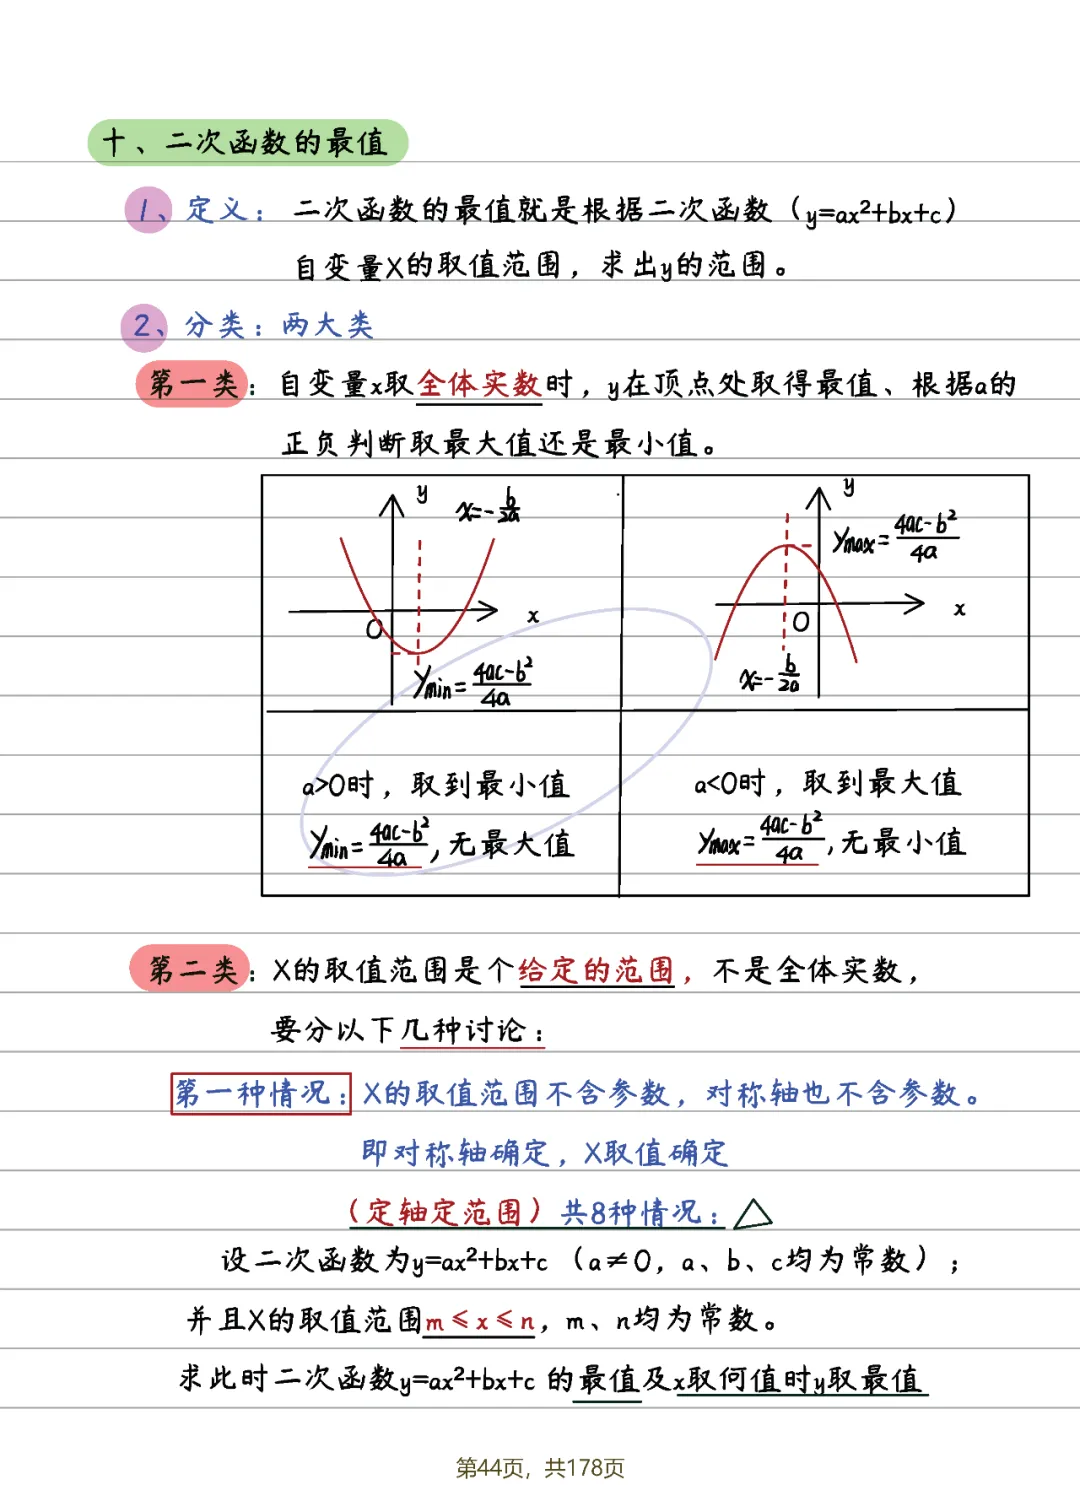 十、二次函数的最值
1、定义：二次函数的最值就是根据二次函数（y=ax²+bx+c）
自变量X的取值范围，求出y的范围。
2、分类：两大类
第一类：自变量x取全体实数时，y在顶点处取得最值、根据a的
正负判断取最大值还是最小值。
y
x=-b/2a
O
x
ymin=4ac-b²/4a
y
ymax=4ac-b²/4a
x
O
x=-b/2a
a>0时，取到最小值
ymin=4ac-b²/4a,无最大值
a<0时，取到最大值
ymax=4ac-b²/4a,无最小值
第二类：X的取值范围是个给定的范围，不是全体实数，
要分以下几种讨论：
第一种情况：X的取值范围不含参数，对称轴也不含参数。
即对称轴确定，X取值确定
（定轴定范围）共8种情况：△
设二次函数为y=ax²+bx+c（a≠0，a、b、c均为常数）；
并且X的取值范围m≤x≤n，m、n均为常数。
求此时二次函数y=ax²+bx+c 的最值及x取何值时y取最值
第44页，共178页